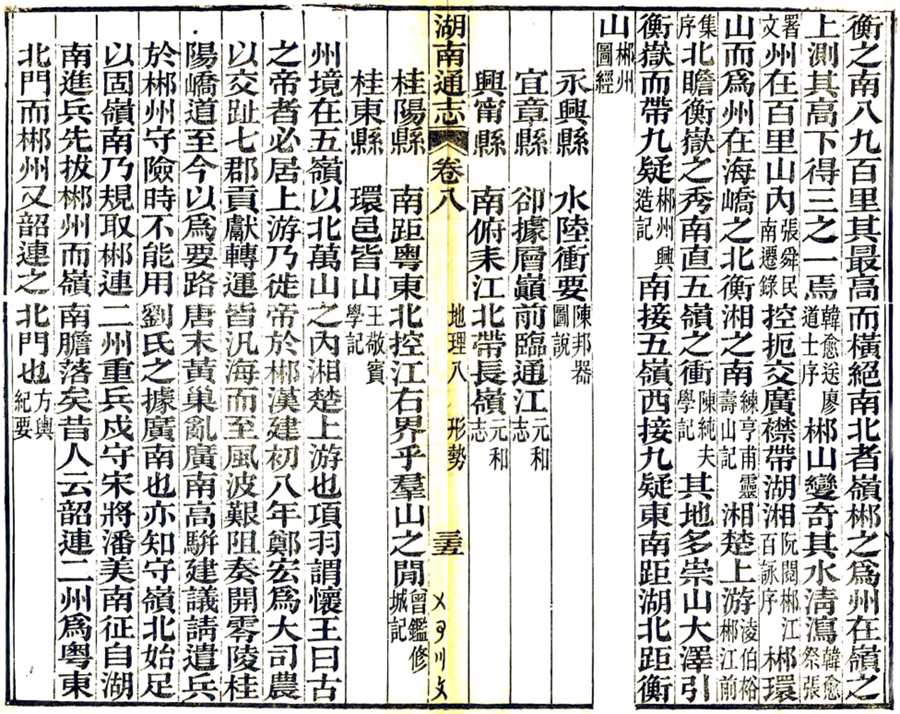 衡之南八九百里其最高而橫絕南北者嶺郴之爲州在嶺之
上測其高下得三之一焉韓愈送廖道士序郴山變奇其水清瀉韓愈祭張
署文州在百里山內張舜民南遷錄控扼交廣襟帶湖湘阮閱郴江百詠序郴環
山而爲州在海嶠之北衡湘之南練亨甫靈壽山記湘楚上游淩伯裕郴江前
集序北瞻衡嶽之秀南直五嶺之衝陳純夫學記其地多崇山大澤引
衡嶽而帶九疑郴州興造記南接五嶺西接九疑東南距湖北距衡
山郴州圖經
永興縣 水陸衝要陳邦器圖說
宜章縣 卻據層巔前臨通江元和志
興甯縣 南俯耒江北帶長嶺元和志
湖南通志 卷八 地理八 形勢
桂陽縣 南距粵東北控江右界乎羣山之閒曾鑑修城記
桂東縣 環邑皆山王敬賓學記
州境在五嶺以北萬山之內湘楚上游也項羽謂懷王曰古
之帝者必居上游乃徙帝於郴漢建初八年鄭宏爲大司農
以交趾七郡貢獻轉運皆汎海而至風波艱阻奏開零陵桂
陽嶠道至今以爲要路唐末黃巢亂廣南高駢建議請遣兵
於郴州守險時不能用劉氏之據廣南也亦知守嶺北始足
以固嶺南乃規取郴連二州重兵戍守宋將潘美南征自湖
南進兵先拔郴州而嶺南膽落矣昔人云韶連二州爲粵東
北門而郴州又韶連之北門也方輿紀要